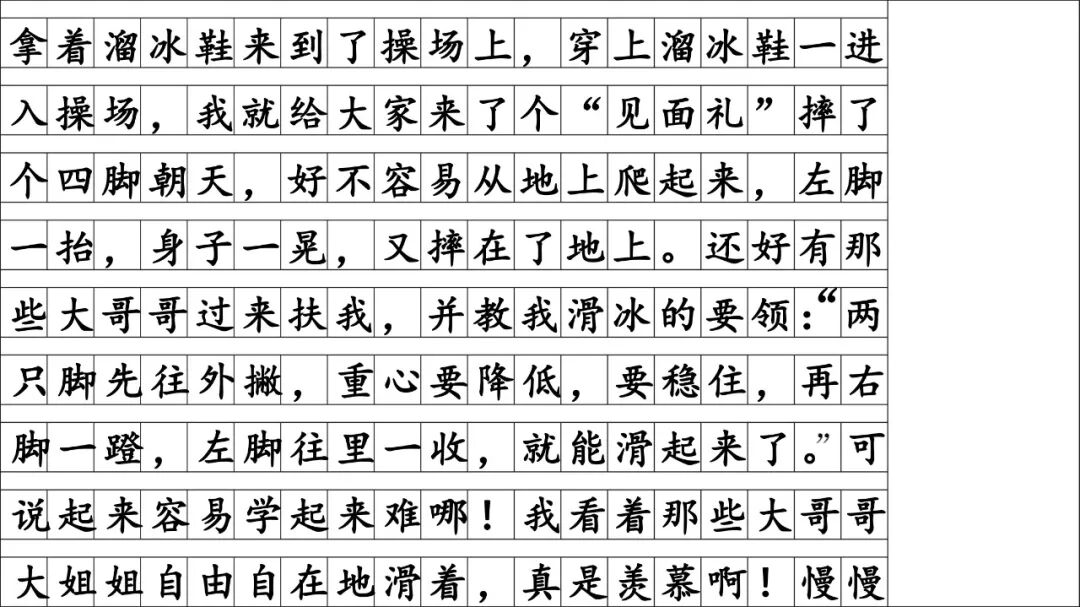 拿着溜冰鞋来到了操场上，穿上溜冰鞋一进
入操场，我就给大家来了个“见面礼”摔了
个四脚朝天，好不容易从地上爬起来，左脚
一抬，身子一晃，又摔在了地上。还好有那
些大哥哥过来扶我，并教我滑冰的要领：“两
只脚先往外撇，重心要降低，要稳住，再右
脚一蹬，左脚往里一收，就能滑起来了。”可
说起来容易学起来难哪！我看着那些大哥哥
大姐姐自由自在地滑着，真是羡慕啊！慢慢